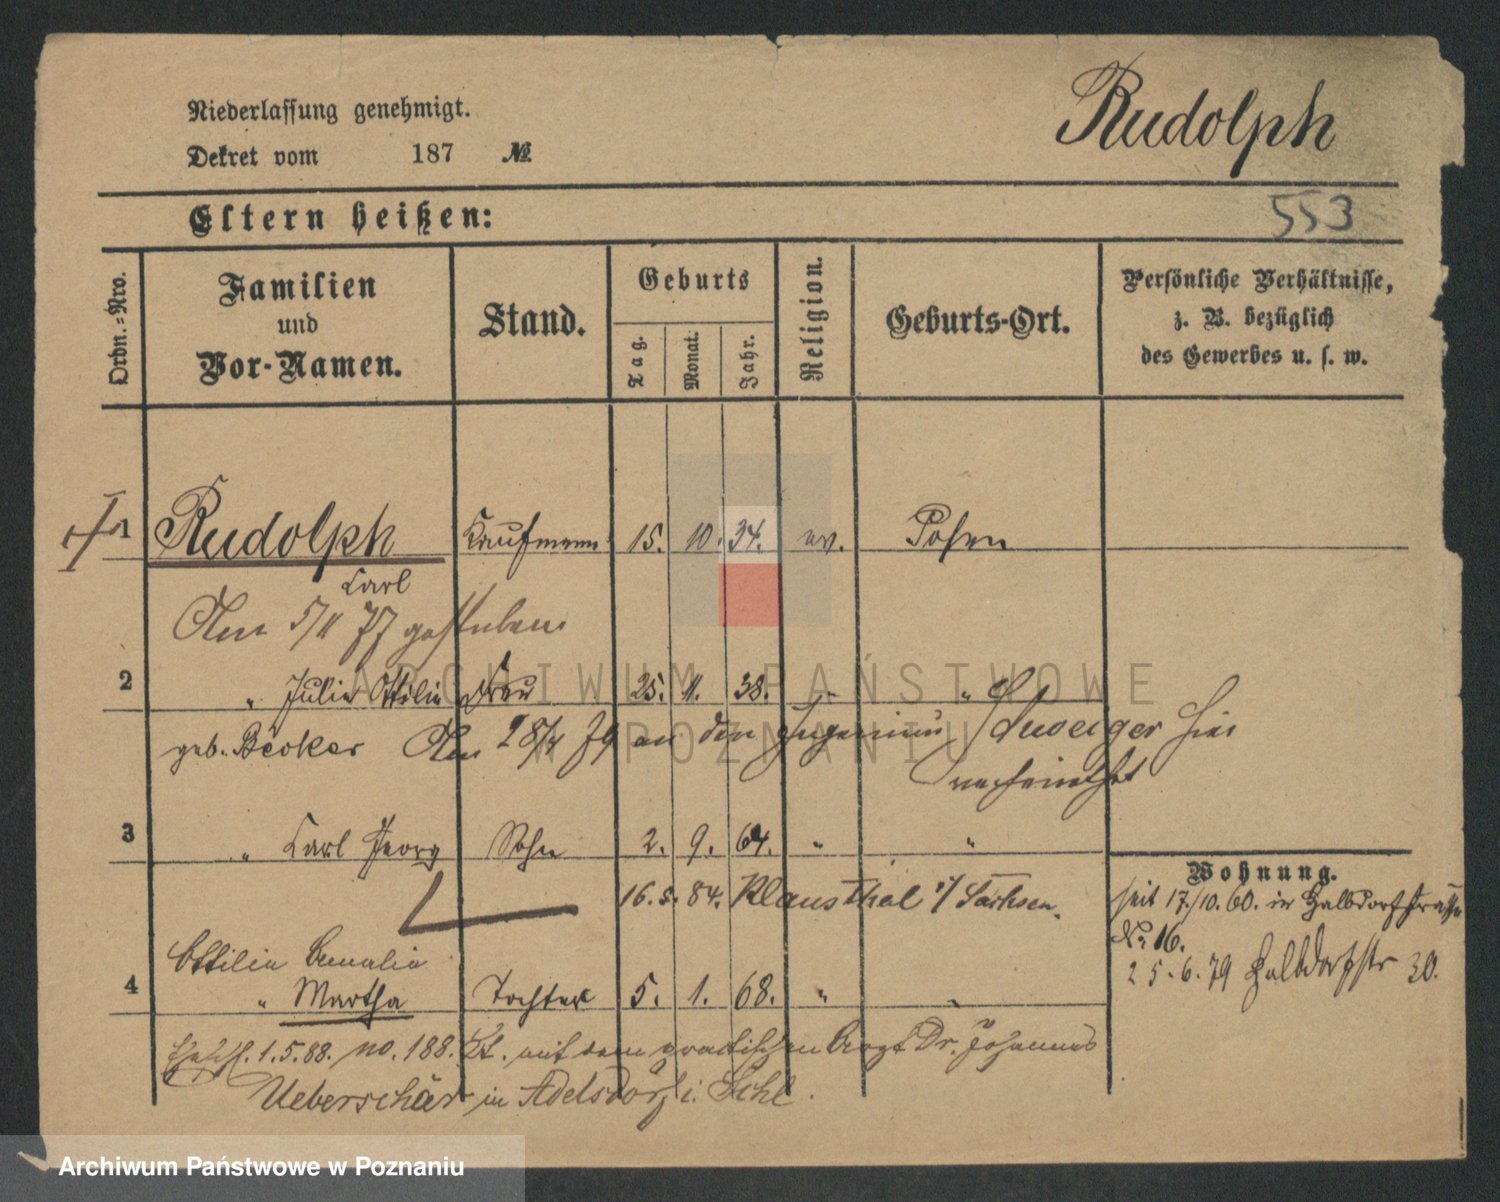 Niederlassung genehmigt.
Dekret vom 187 №
Rudolph
Eltern heißen:
553
Ordn.-Nro.
Familien und Vor-Namen.
Stand.
Geburts
Tag.
Monat.
Jahr.
Religion.
Geburts-Ort.
Persönliche Verhältnisse,
z. B. bezüglich
des Gewerbes u. s. w.
1 Rudolph Kaufmann 15. 10. 34. ev. Posen
Carl
Am 5/11 77 gestorben
2 " Julie Ottilie Frau 25. 11. 38. " "
geb. Becker Am 28/4 79 an den Ingenieur hier
verheirathet
3 " Carl Georg Sohn 2. 9. 64. " "
16. 5. 84. Klausthal i/ Sachsen.
Wohnung.
seit 17./10. 60. in Halbdorfstraße
No 16.
25. 6. 79 Halbdorfstr 30.
Ottilie Amalie
4 " Martha Tochter 5. 1. 68. " "
1. 5. 88. no. 188. St. mit dem practischen Arzt Dr. Johannes
Ueberschär in Adelsdorf i. Schl.
ARCHIWUM PAŃSTWOWE
W POZNANIU
Archiwum Państwowe w Poznaniu